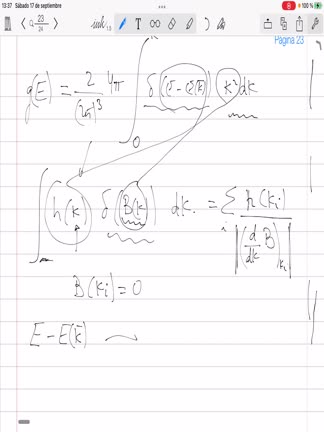 13:37 Sábado 17 de septiembre 100 %
23
24
Página 23
g(E) = 2/(2π)³ 4π ∫₀ δ(E - E(k)) k² dk
∫ h(k) δ(B(k)) dk = Σᵢ h(kᵢ) / |(d/dk B)ₖᵢ|
B(kᵢ) = 0
E - E(k̄)